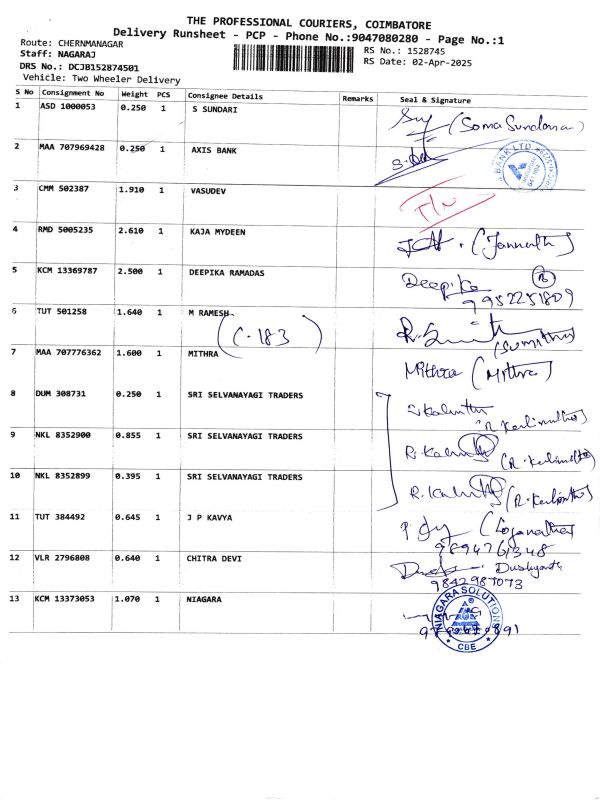 THE PROFESSIONAL COURIERS, COIMBATORE
Delivery Runsheet - PCP - Phone No.:9047080280 - Page No.:1
Route: CHERNMANAGAR
Staff: NAGARAJ
DRS No.: DCJB152874501
Vehicle: Two Wheeler Delivery
RS No.: 1528745
RS Date: 02-Apr-2025
S No Consignment No Weight PCS Consignee Details Remarks Seal & Signature
1 ASD 1000053 0.250 1 S SUNDARI (Soma Sundaram)
2 MAA 707969428 0.250 1 AXIS BANK BANK LTD
3 CMM 502387 1.910 1 VASUDEV
4 RMD 5005235 2.610 1 KAJA MYDEEN (Jannath)
5 KCM 13369787 2.500 1 DEEPIKA RAMADAS Deepika
9952251809
6 TUT 501258 1.640 1 M RAMESH (C-183) (Sumithra)
7 MAA 707776362 1.600 1 MITHRA Mithra (Mithra)
8 DUM 308731 0.250 1 SRI SELVANAYAGI TRADERS
9 NKL 8352900 0.855 1 SRI SELVANAYAGI TRADERS
10 NKL 8352899 0.395 1 SRI SELVANAYAGI TRADERS
11 TUT 384492 0.645 1 J P KAVYA (Loganathan)
9894761348
12 VLR 2796808 0.640 1 CHITRA DEVI Dushyanth
9842987073
13 KCM 13373053 1.070 1 NIAGARA NIAGARA SOLUTIONS
CBE